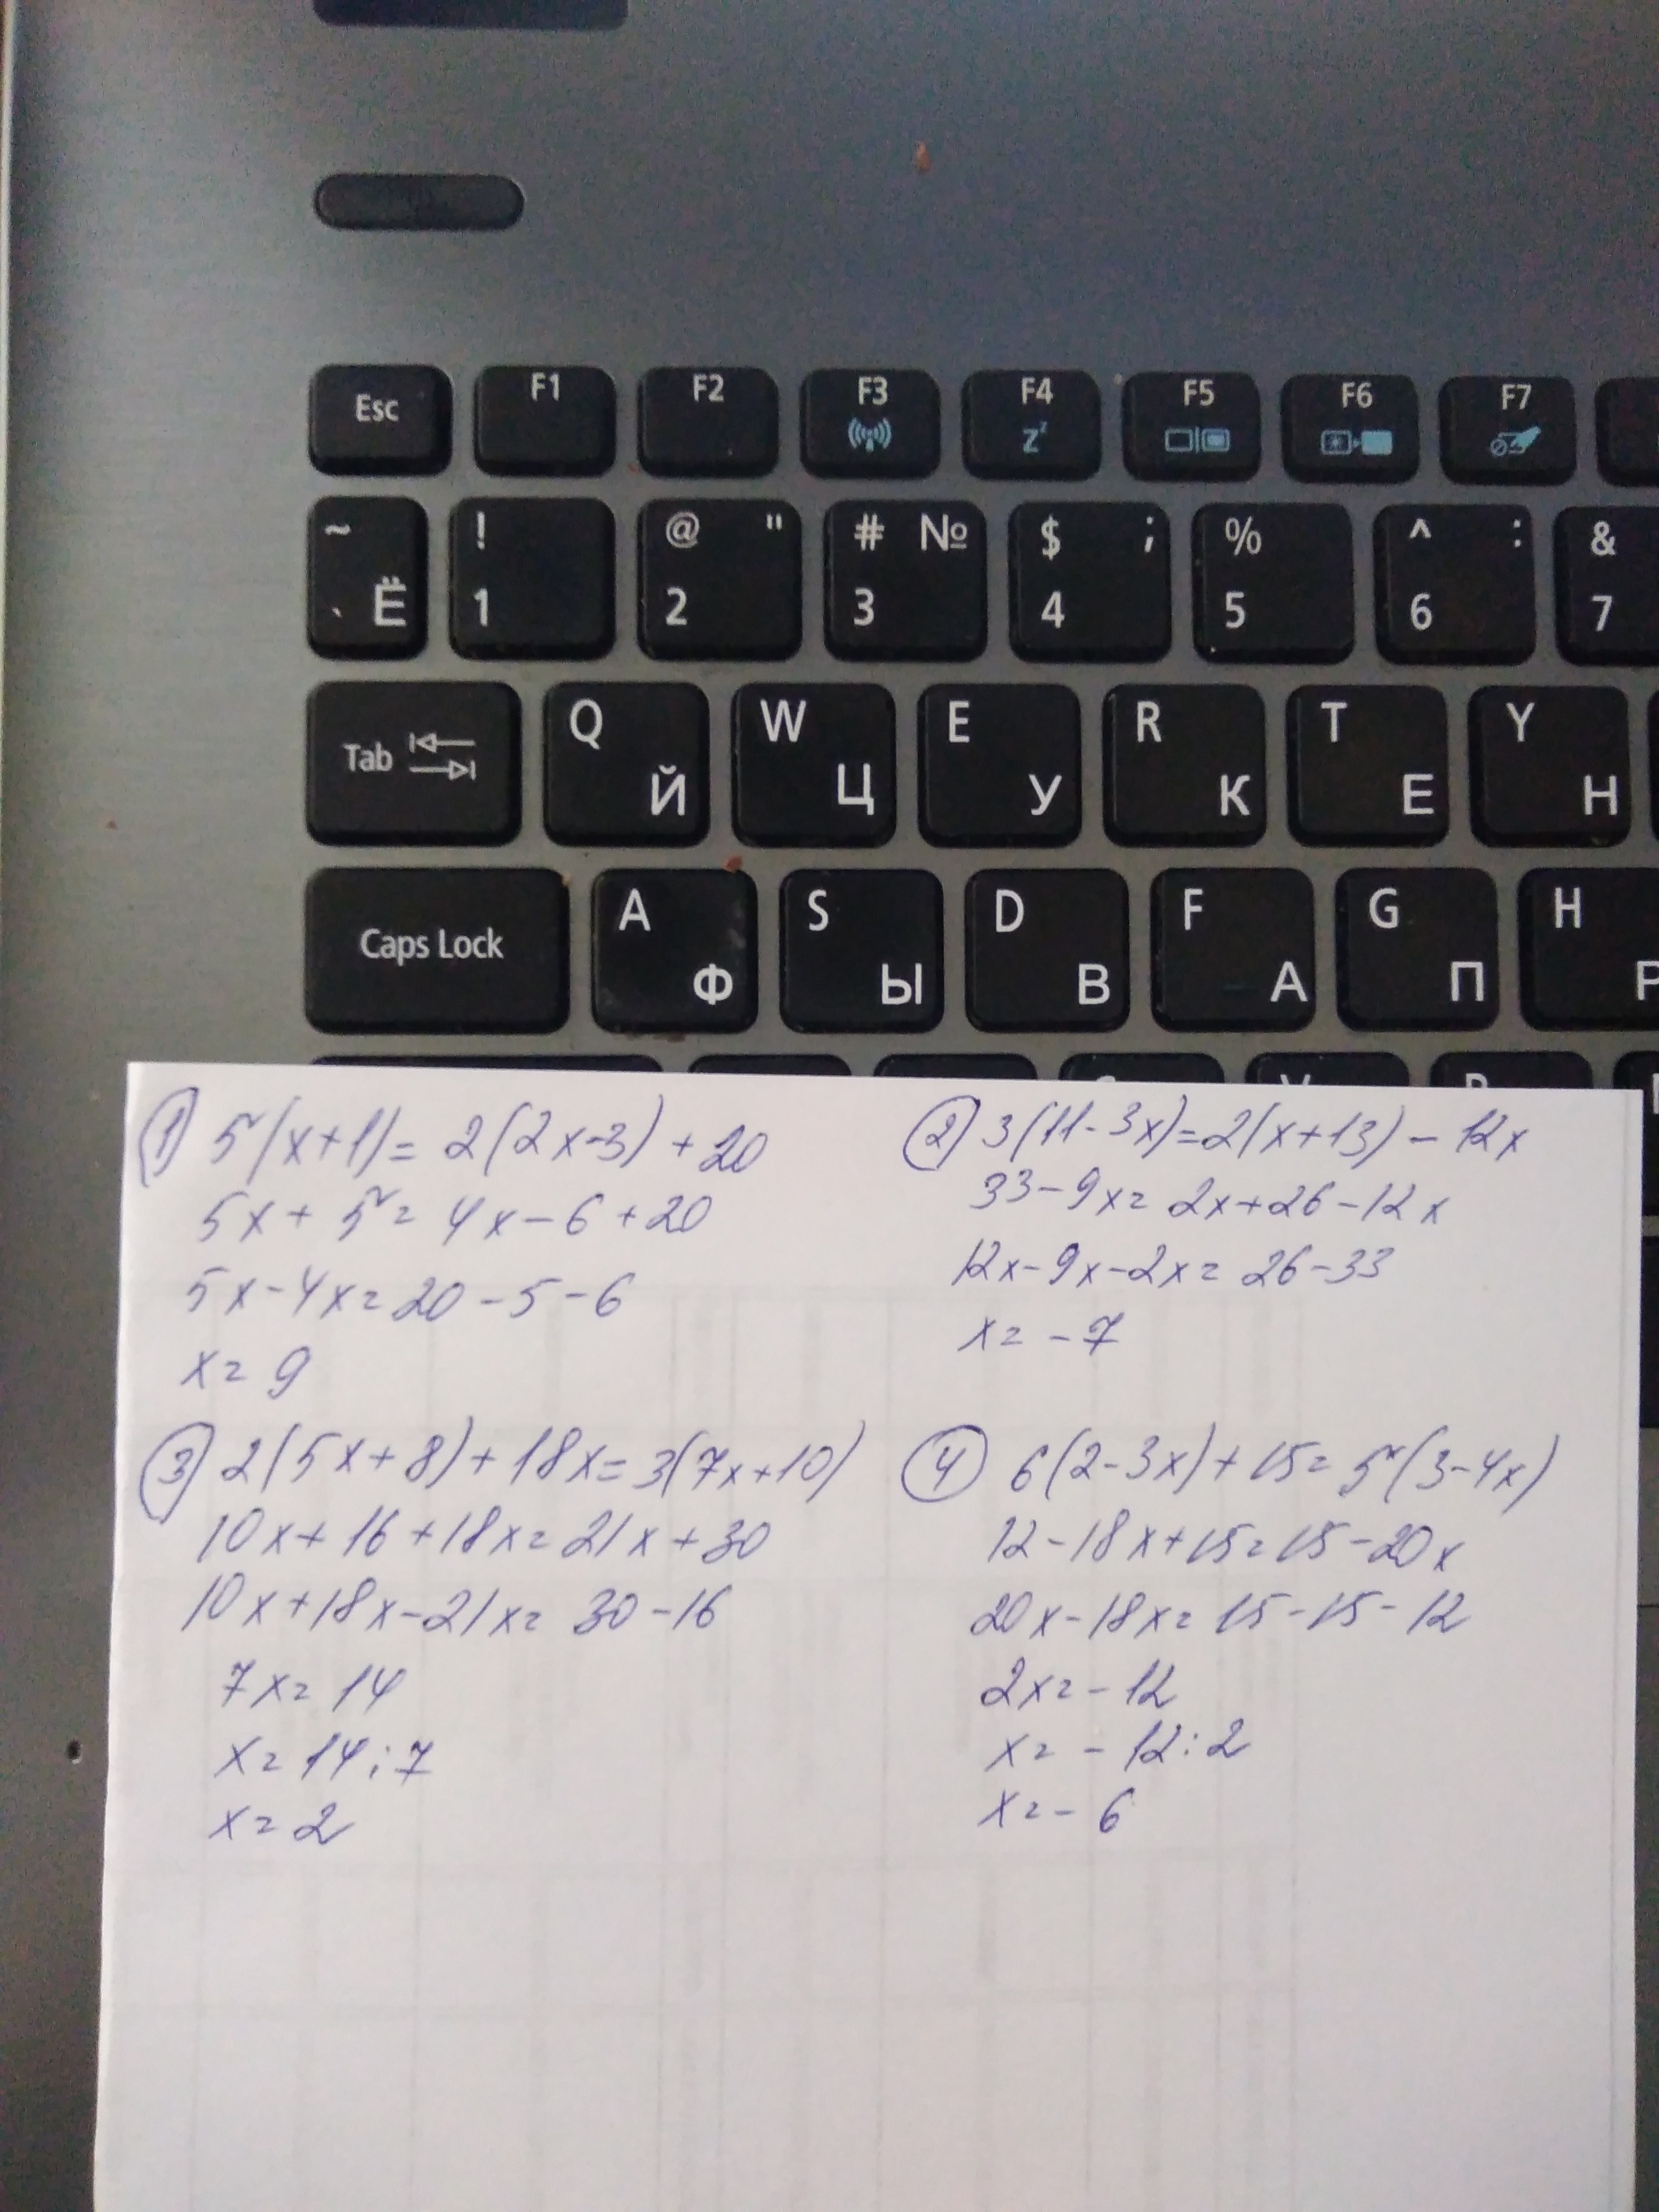 Esc F1 F2 F3 F4 Z^z F5 F6 F7
~ ! @ " # № $ ; % ^ : &
` Ё 1 2 3 4 5 6 7
Tab Q W E R T Y
Й Ц У К Е Н
Caps Lock A S D F G H
Ф Ы В А П Р
① 5(x+1)= 2(2x-3)+20
5x+5= 4x-6+20
5x-4x=20-5-6
x= 9
② 3(11-3x)=2(x+13)-12x
33-9x= 2x+26-12x
12x-9x-2x= 26-33
x= -7
③ 2(5x+8)+18x=3(7x+10)
10x+16+18x=21x+30
10x+18x-21x= 30-16
7x= 14
x= 14:7
x= 2
④ 6(2-3x)+15= 5(3-4x)
12-18x+15=15-20x
20x-18x= 15-15-12
2x= -12
x= -12:2
x= -6